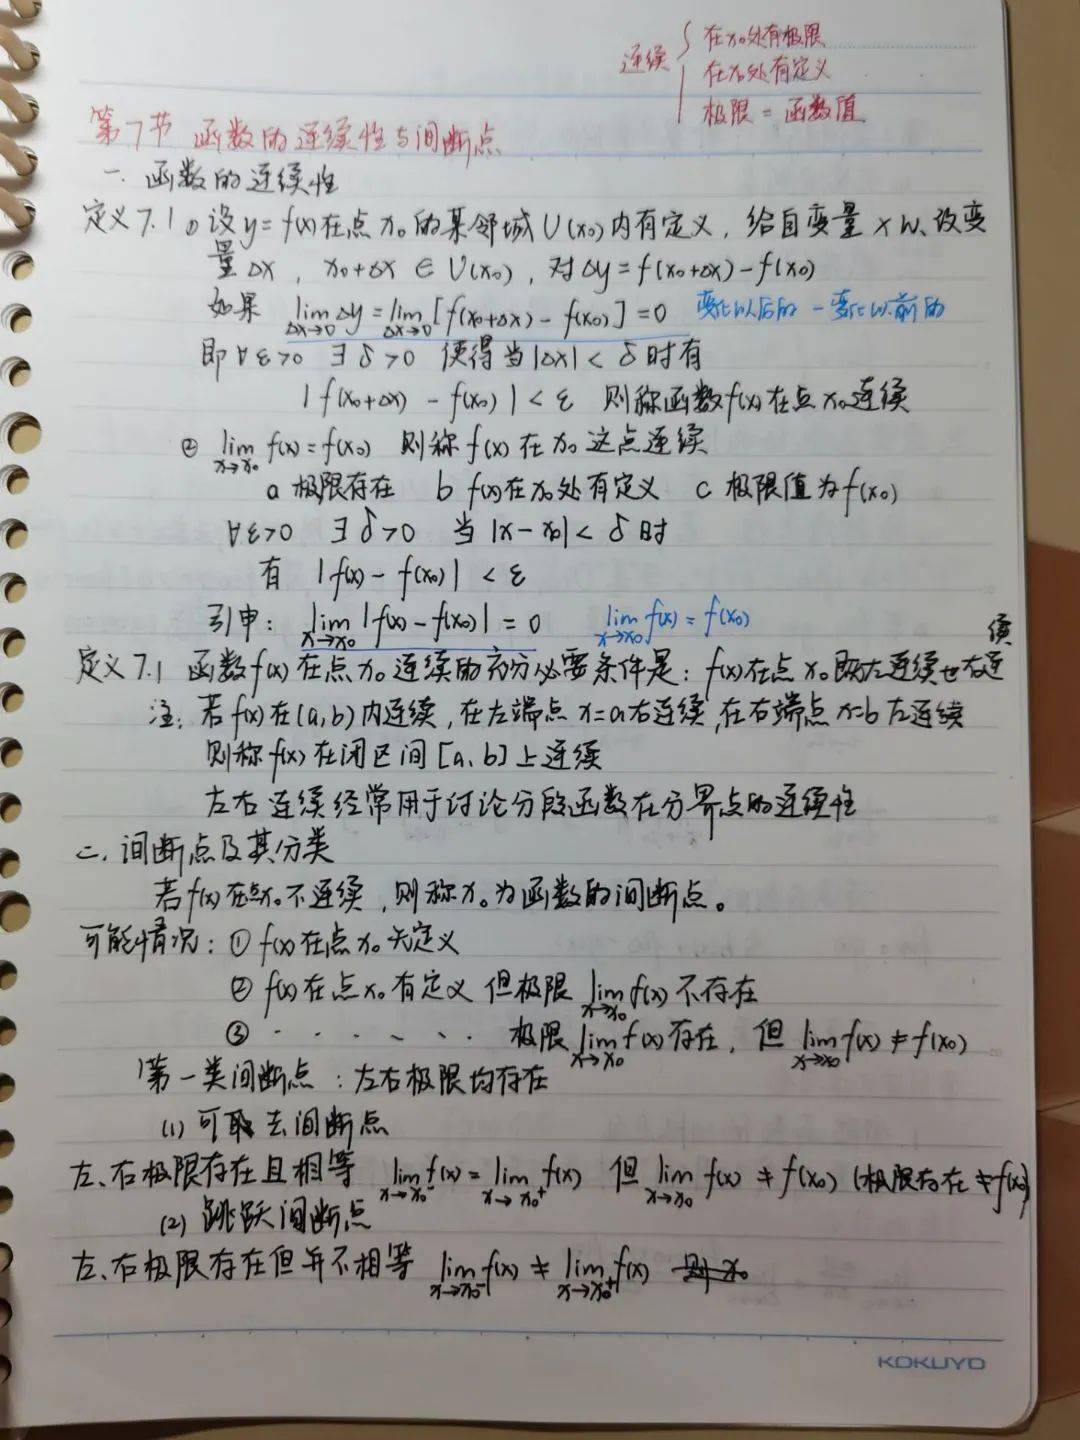 连续 { 在x₀处有极限
在x₀处有定义
极限 = 函数值
第7节 函数的连续性与间断点
一. 函数的连续性
定义7.1 ① 设y=f(x)在点x₀的某邻域U(x₀)内有定义, 给自变量x以改变
量Δx, x₀+Δx∈U(x₀), 对Δy=f(x₀+Δx)-f(x₀)
如果 lim_{Δx→0} Δy = lim_{Δx→0} [f(x₀+Δx)-f(x₀)] = 0 变化以后的-变化以前的
即∀ε>0 ∃δ>0 使得当|Δx|<δ时有
|f(x₀+Δx)-f(x₀)|<ε 则称函数f(x)在点x₀连续
② lim_{x→x₀} f(x)=f(x₀) 则称f(x)在x₀这点连续
a 极限存在 b f(x)在x₀处有定义 c 极限值为f(x₀)
∀ε>0 ∃δ>0 当|x-x₀|<δ时
有 |f(x)-f(x₀)|<ε
引申: lim_{x→x₀} |f(x)-f(x₀)|=0 lim_{x→x₀} f(x)=f(x₀)
定义7.1 函数f(x)在点x₀连续的充分必要条件是: f(x)在点x₀既左连续也右连续
注: 若f(x)在(a,b)内连续, 在左端点x=a右连续, 在右端点x=b左连续
则称f(x)在闭区间[a、b]上连续
左右连续经常用于讨论分段函数在分界点的连续性
二、间断点及其分类
若f(x)在点x₀不连续, 则称x₀为函数的间断点。
可能情况: ① f(x)在点x₀无定义
② f(x)在点x₀有定义 但极限 lim_{x→x₀} f(x)不存在
③ · · · · · · 极限 lim_{x→x₀} f(x)存在, 但 lim_{x→x₀} f(x)≠f(x₀)
第一类间断点: 左右极限均存在
(1) 可取去间断点
左、右极限存在且相等 lim_{x→x₀⁻} f(x) = lim_{x→x₀⁺} f(x) 但 lim_{x→x₀} f(x)≠f(x₀) (极限存在≠f(x₀)
(2) 跳跃间断点
左、右极限存在但并不相等 lim_{x→x₀⁻} f(x) ≠ lim_{x→x₀⁺} f(x) 则x₀
KOKUYO